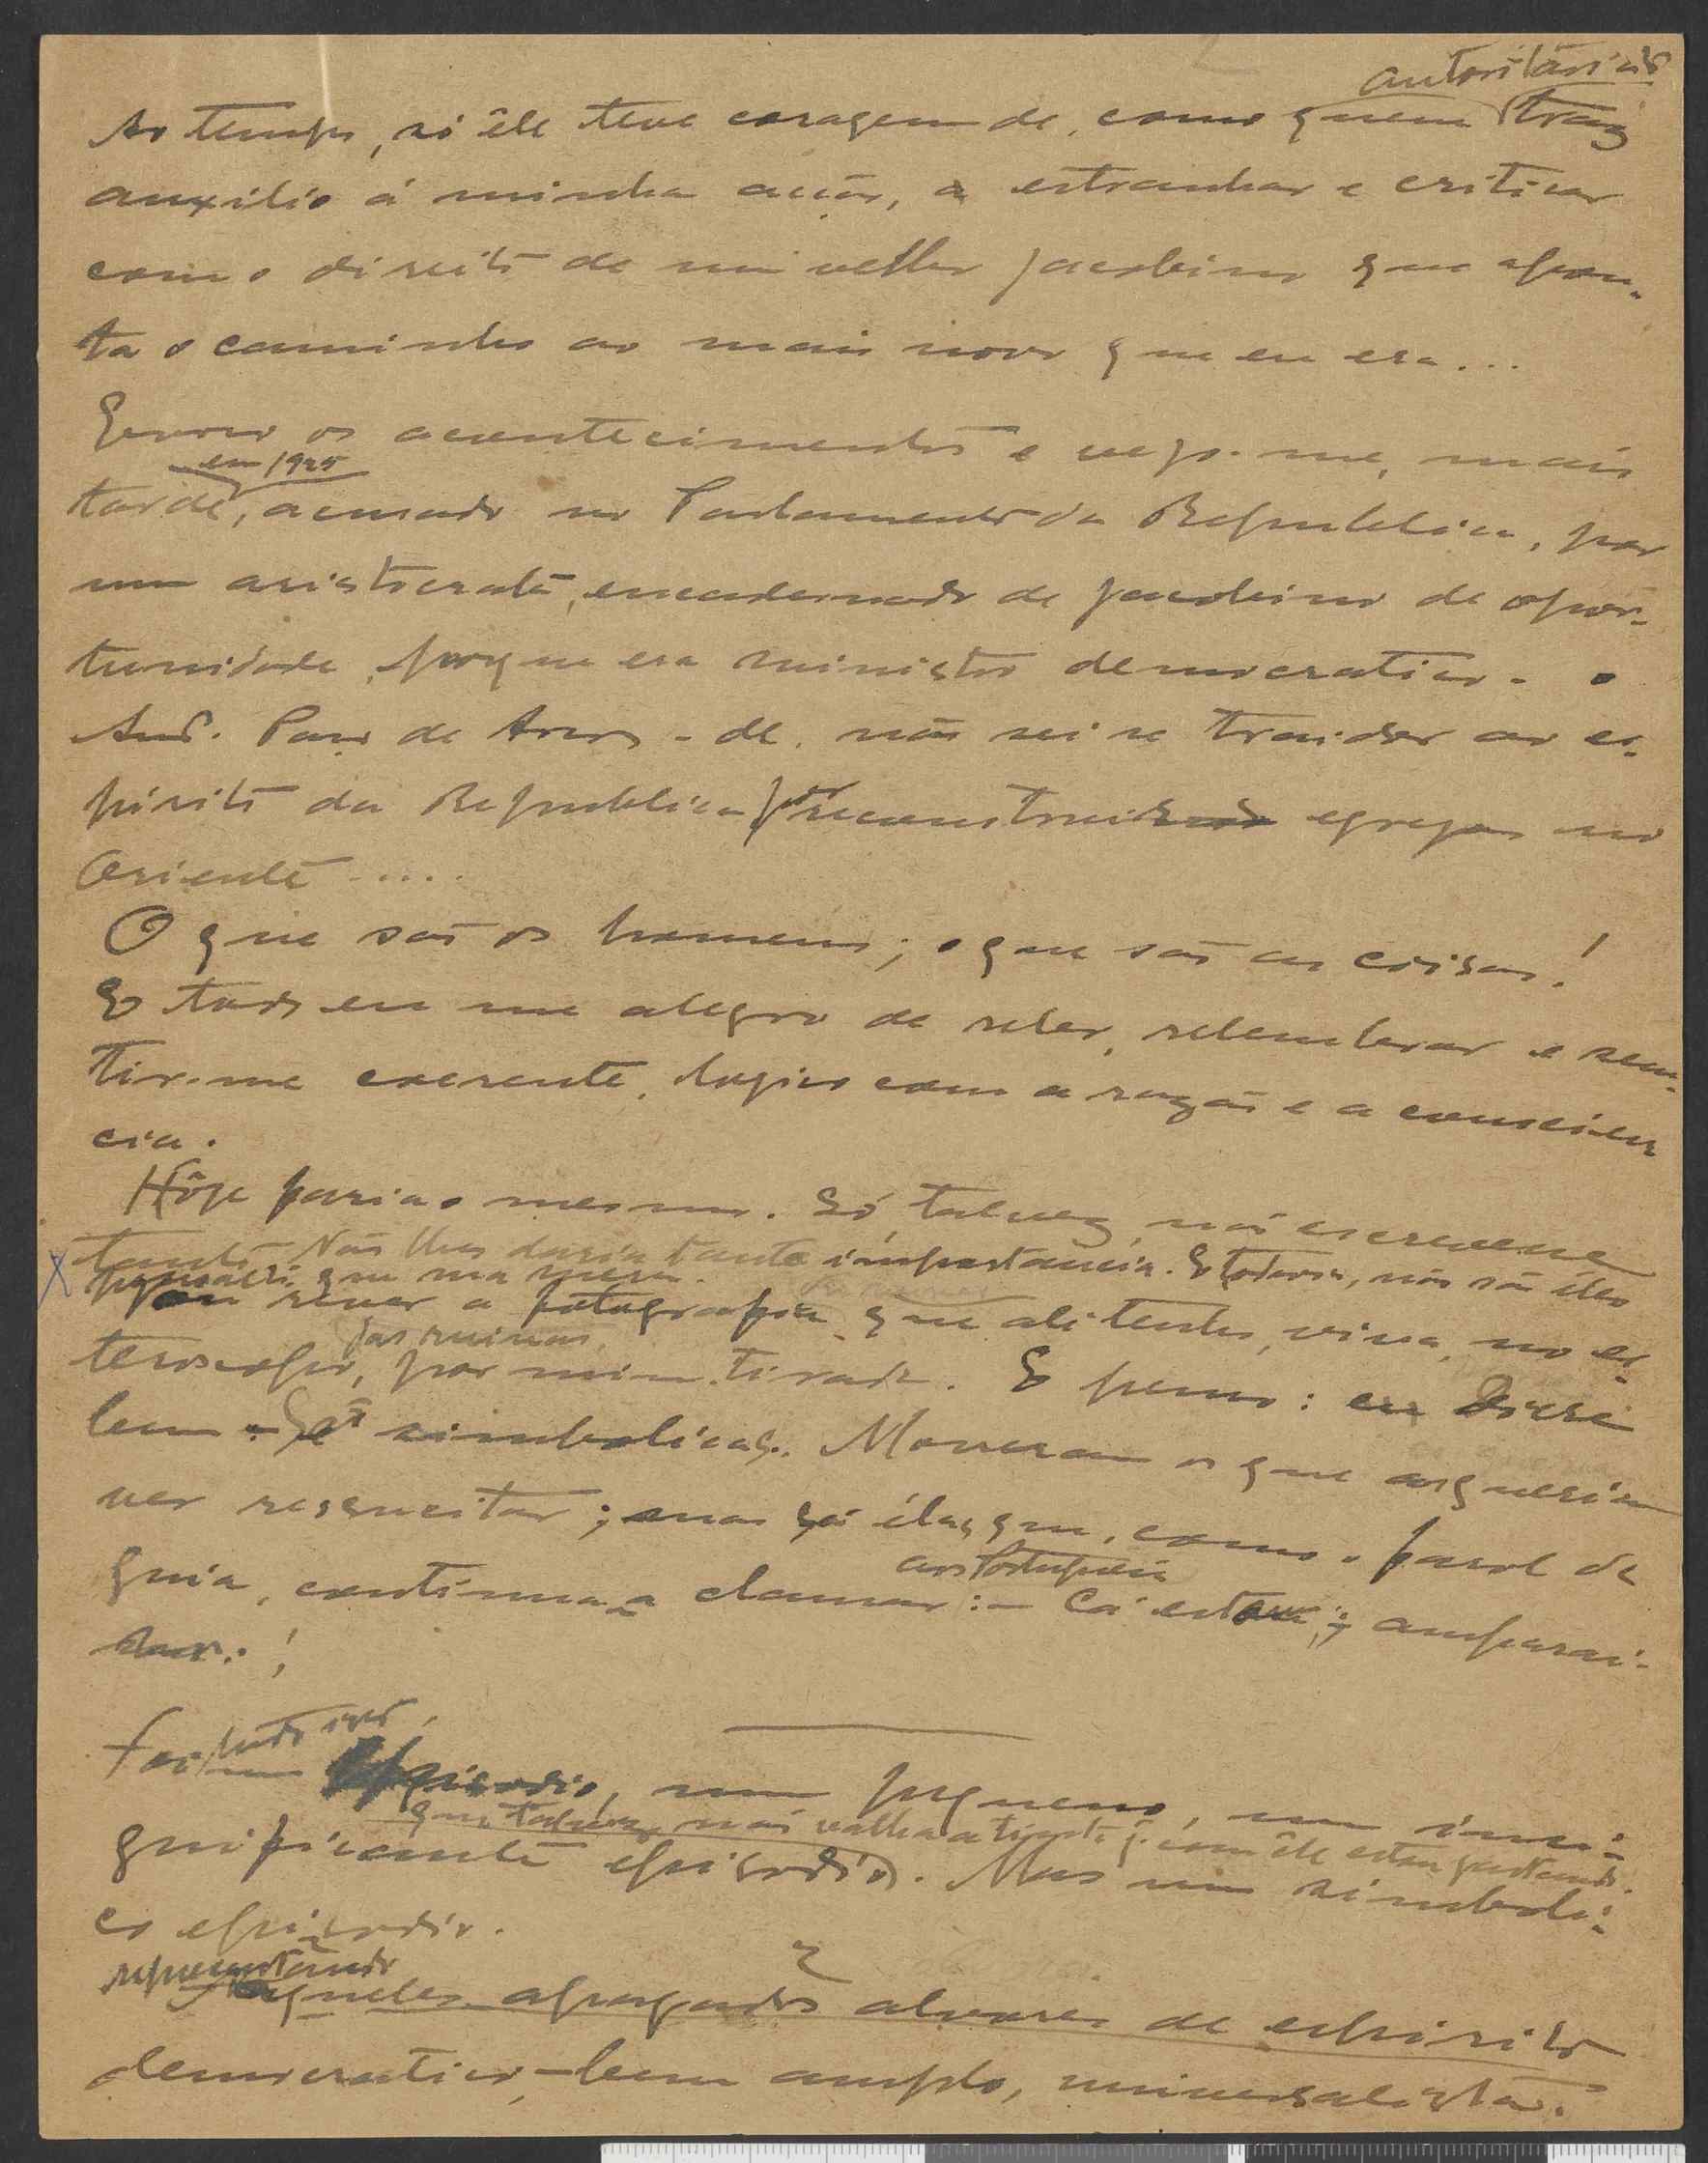 autoritário
Ao tempo, só êle teve coragem de, como quem traz
auxilio á minha acção, a estranhar e criticar
com o direito de um velho jacobino que apon-
ta o caminho ao mais novo que eu era...
Evoco os acontecimentos e vejo-me, mais
em 1925
tarde, acusado no Parlamento da Republica, por
um aristocrata, encadernado de jacobino de opor-
tunidade, porque era ministro democratico - o
Snr. Pais de - de, não sei se traidor ao es-
pirito da Republica por reconstruir egrejas no
Oriente.....
O que são os homens; o que são as coisas!
E todo eu me alegro de reler, relembrar e sen-
tir-me coerente, logico com a razão e a conscien
cia.
Hôje faria o mesmo. Só, talvez, não escrevesse
tanto. Não lhes daria tanta importancia. E todavia, não são êles
que
rever a fotografia que ali tenho, viva, no es-
das ruinas,
tereoscopio, por mim tirada. E penso: Diu
bem simbolicas. Morreram os que as queriam
ver resuscitar; mas são élas que, como o farol de
aos Portugueses
guia, continua a clamar: - Cá estou; amparai-
nos.!
tudo isto,
Foi um episodio, um pequeno, um insi-
que talvez não valha a tinta q. com êle estou gastando.
gnificante episodio. Mas um simboli-
co episodio.
representando
aqueles apagados alvores de espirito
democratico, - bem amplo, universalista.